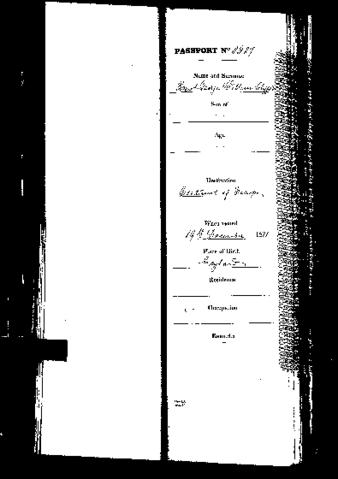 PASSPORT No
Name and Surname
George William
Son of
Age
Destination
Continent of Europe
When issued
19th December 187
Place of Birth
England
Residence
Occupation
Remarks